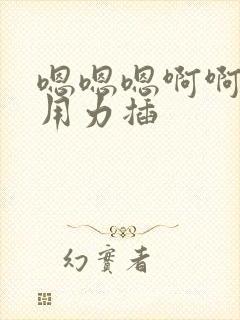 嗯嗯嗯啊啊
用力插
幻實者